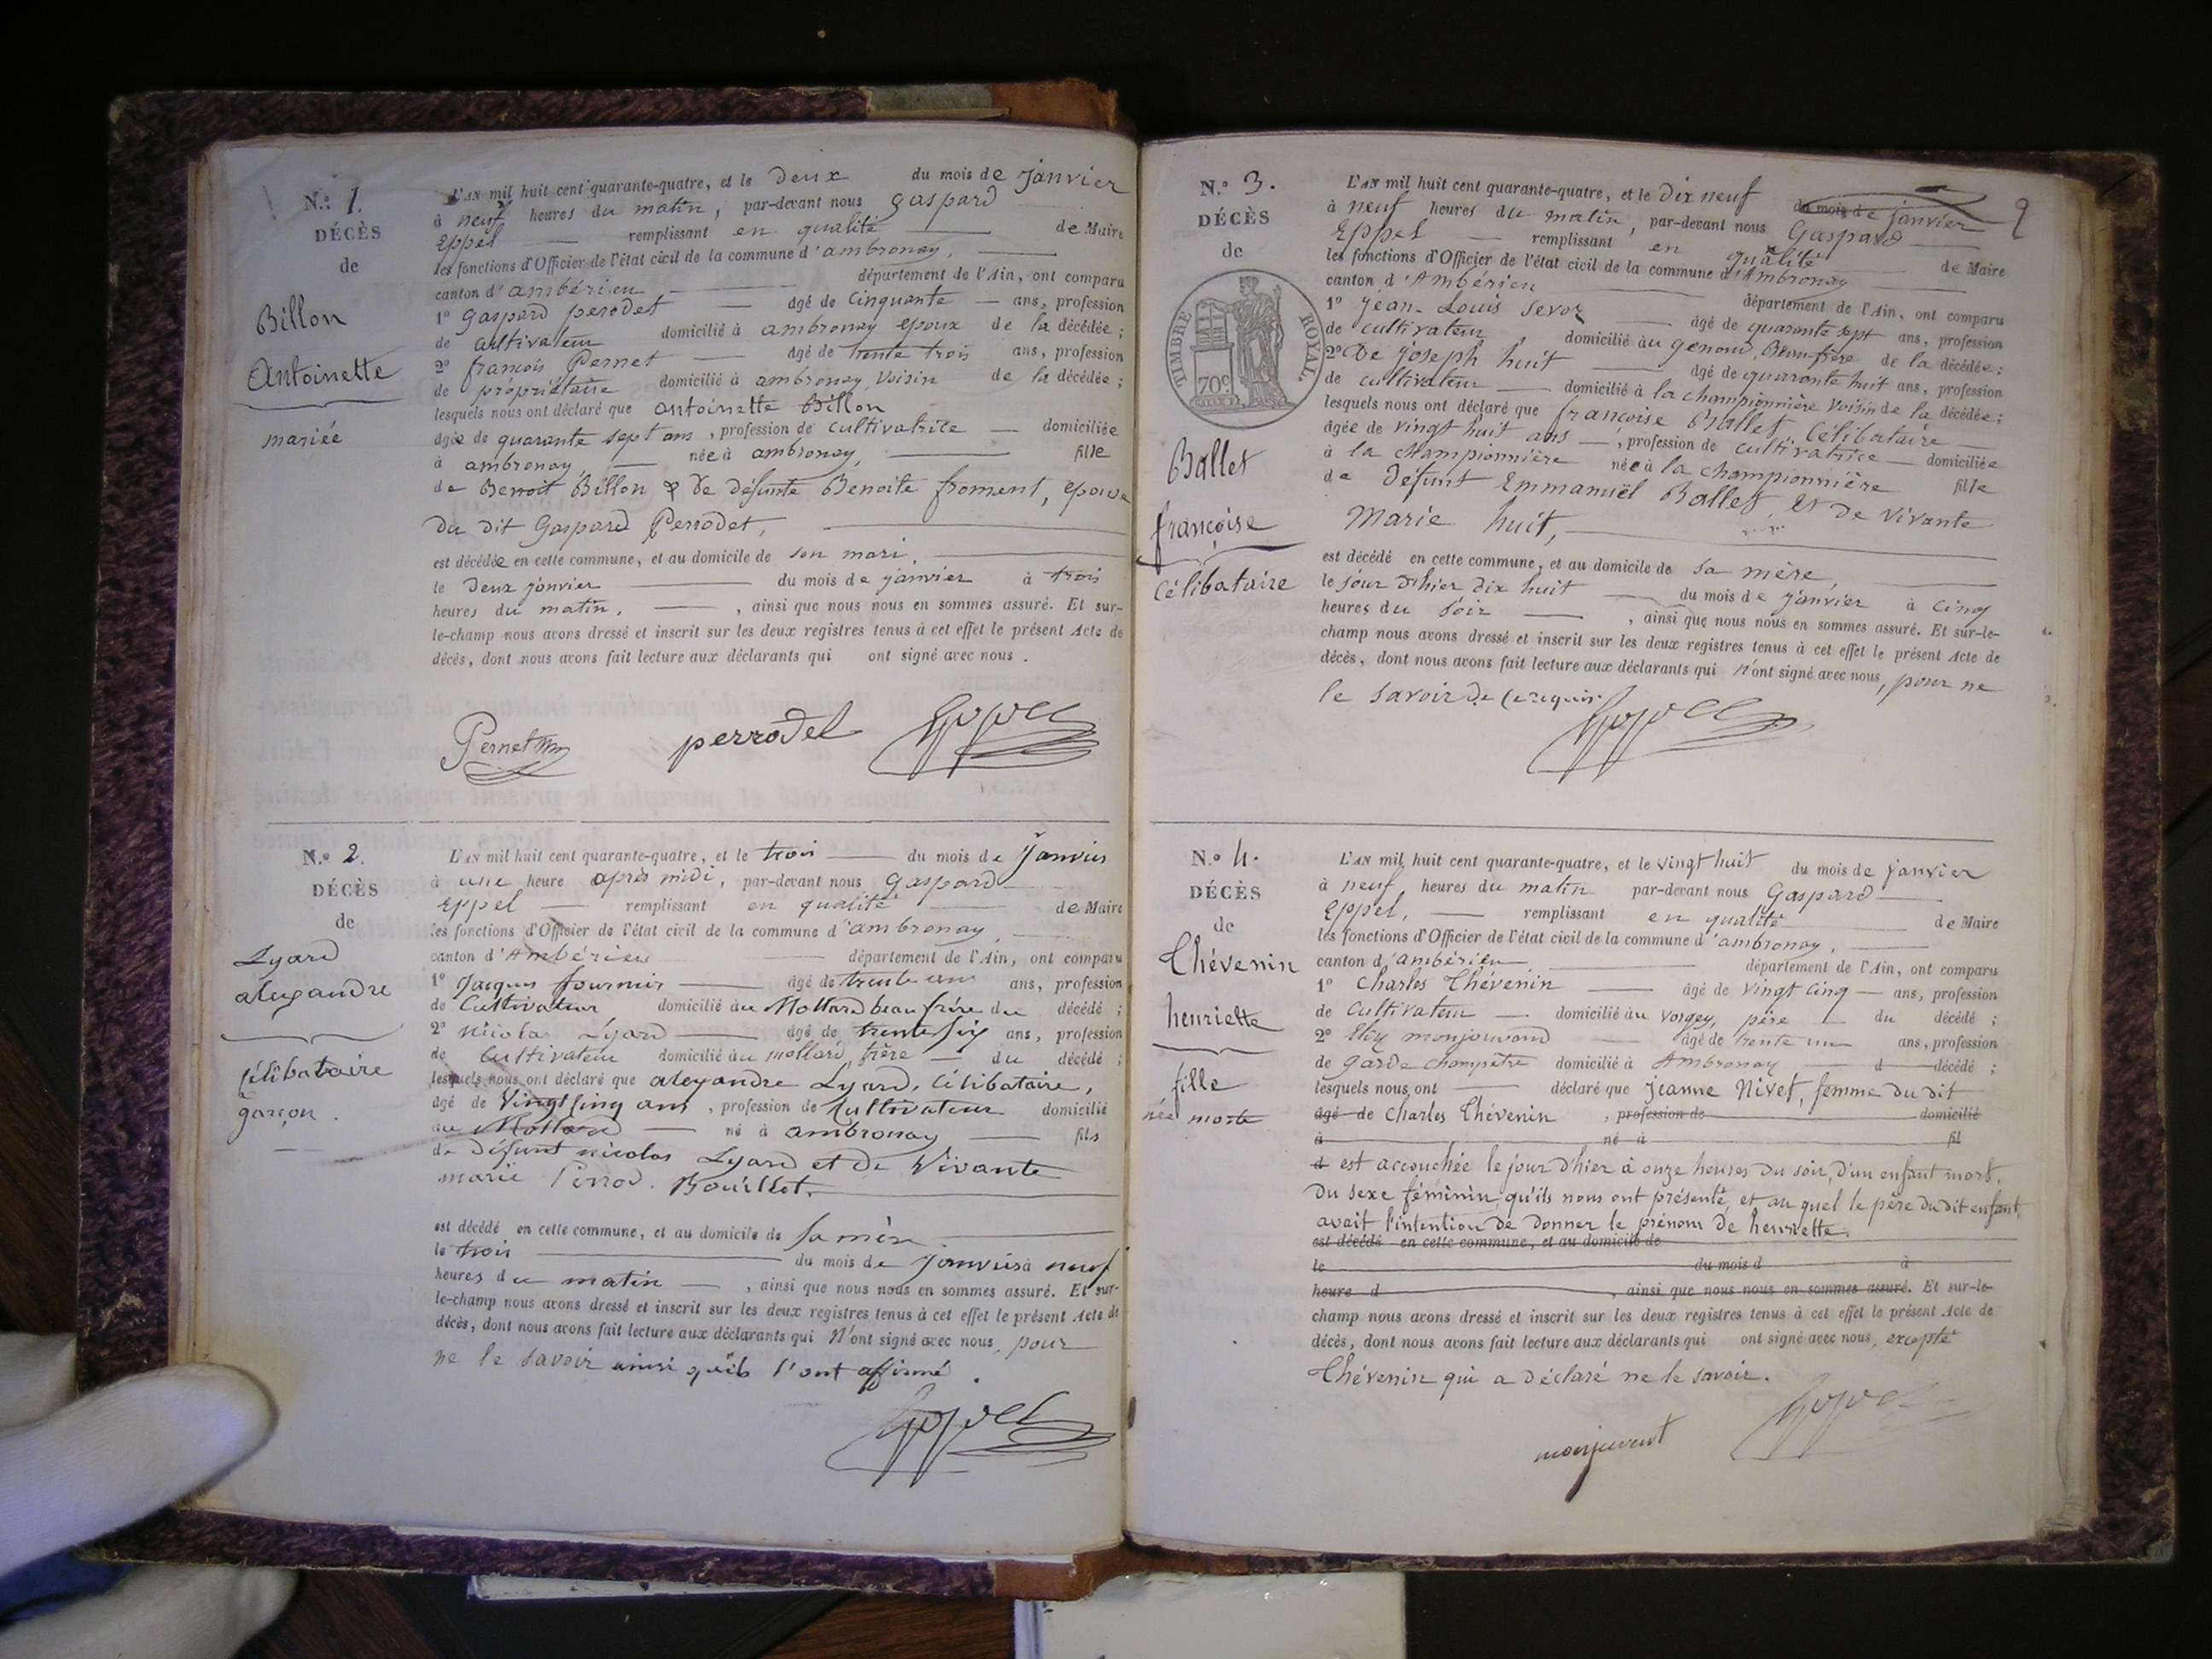 N.° 1.
DÉCÈS
de
Billon
Antoinette
mariée
L'AN mil huit cent quarante-quatre, et le deux du mois de janvier
à neuf heures du matin, par-devant nous gaspard
Eppel remplissant en qualité de Maire
les fonctions d'Officier de l'état civil de la commune d'ambronay,
canton d'ambérieu département de l'Ain, ont comparu
1° gaspard perodet âgé de cinquante ans, profession
de cultivateur domicilié à ambronay epoux de la décédée ;
2° francois Pernet âgé de trente trois ans, profession
de propriétaire domicilié à ambronay, voisin de la décédée ;
lesquels nous ont déclaré que antoinette Billon
âgée de quarante sept ans, profession de cultivatrice domiciliée
à ambronay, née à ambronay, fille
de Benoit Billon & de défunte Benoite froment, epouse
du dit Gaspard Perrodet,
est décédée en cette commune, et au domicile de son mari,
le deux janvier du mois de janvier à trois
heures du matin, , ainsi que nous nous en sommes assuré. Et sur-
le-champ nous avons dressé et inscrit sur les deux registres tenus à cet effet le présent Acte de
décès, dont nous avons fait lecture aux déclarants qui ont signé avec nous.
Pernet perrodet Eppel
N.° 2.
DÉCÈS
de
Lyard
alexandre
célibataire
garçon.
L'AN mil huit cent quarante-quatre, et le trois du mois de Janvier
à une heure après midi, par-devant nous Gaspard
Eppel remplissant en qualité de Maire
les fonctions d'Officier de l'état civil de la commune d'ambronay,
canton d'Ambérieu département de l'Ain, ont comparu
1° Jacques fournier âgé de trente ans ans, profession
de Cultivateur domicilié au Mollard beau frère du décédé ;
2° nicolas Lyard âgé de trente six ans, profession
de Cultivateur domicilié au mollard, frère du décédé ;
lesquels nous ont déclaré que alexandre Lyard, célibataire,
âgé de Vingt cinq ans, profession de Cultivateur domicilié
au Mollard né à ambronay fils
de défunt nicolas Lyard et de Vivante
marie Perrod. Bouillet.
est décédé en cette commune, et au domicile de sa mère
le trois du mois de janvier à neuf
heures du matin , ainsi que nous nous en sommes assuré. Et sur-
le-champ nous avons dressé et inscrit sur les deux registres tenus à cet effet le présent Acte de
décès, dont nous avons fait lecture aux déclarants qui N'ont signé avec nous, pour
ne le savoir ainsi qu'ils l'ont affirmé.
Eppel
2
N.° 3.
DÉCÈS
de
TIMBRE ROYAL.
70c
Ballet
françoise
célibataire
L'AN mil huit cent quarante-quatre, et le Dix neuf du mois de janvier
à neuf heures du matin, par-devant nous Gaspard
Eppel remplissant en qualité de Maire
les fonctions d'Officier de l'état civil de la commune d'Ambronay
canton d'Ambérieu département de l'Ain, ont comparu
1° Jean-Louis Sevoz âgé de quarante sept ans, profession
de cultivateur, domicilié au genoud, Beau-frère de la décédée ;
2° De Joseph huit âgé de quarante huit ans, profession
de cultivateur domicilié à la championnière Voisin de la décédée ;
lesquels nous ont déclaré que francoise Ballet, Célibataire
âgée de vingt huit ans , profession de cultivatrice domiciliée
à la championnière née à la championnière fille
de défunt Emmanuël Ballet, et de vivante
Marie huit,
est décédé en cette commune, et au domicile de sa mère,
le jour d'hier dix huit du mois de janvier à cinq
heures du soir , ainsi que nous nous en sommes assuré. Et sur-le-
champ nous avons dressé et inscrit sur les deux registres tenus à cet effet le présent Acte de
décès, dont nous avons fait lecture aux déclarants qui N'ont signé avec nous, pour ne
le savoir de ce requis.
Eppel
N.° 4.
DÉCÈS
de
Thévenin
henriette
fille
née morte
L'AN mil huit cent quarante-quatre, et le vingt huit du mois de janvier
à neuf heures du matin par-devant nous Gaspard
Eppel, remplissant en qualité de Maire
les fonctions d'Officier de l'état civil de la commune d'ambronay,
canton d'ambérieu département de l'Ain, ont comparu
1° Charles Thévenin âgé de vingt cinq ans, profession
de Cultivateur domicilié au vorgey, père du décédé ;
2° Eloy monjouvand âgé de trente un ans, profession
de garde champêtre domicilié à Ambronay d décédé ;
lesquels nous ont déclaré que jeanne Nivet, femme du dit
âgé de Charles Thévenin , profession de domicilié
à né à fil
d est accouchée le jour d'hier à onze heures du soir, d'un enfant mort,
du sexe féminin qu'ils nous ont présenté, et au quel le père du dit enfant,
avait l'intention de donner le prénom de henriette.
est décédé en cette commune, et au domicile de
le du mois d à
heure d , ainsi que nous nous en sommes assuré. Et sur-le-
champ nous avons dressé et inscrit sur les deux registres tenus à cet effet le présent Acte de
décès, dont nous avons fait lecture aux déclarants qui ont signé avec nous, excepté
Thévenin qui a déclaré ne le savoir.
monjuvent Eppel